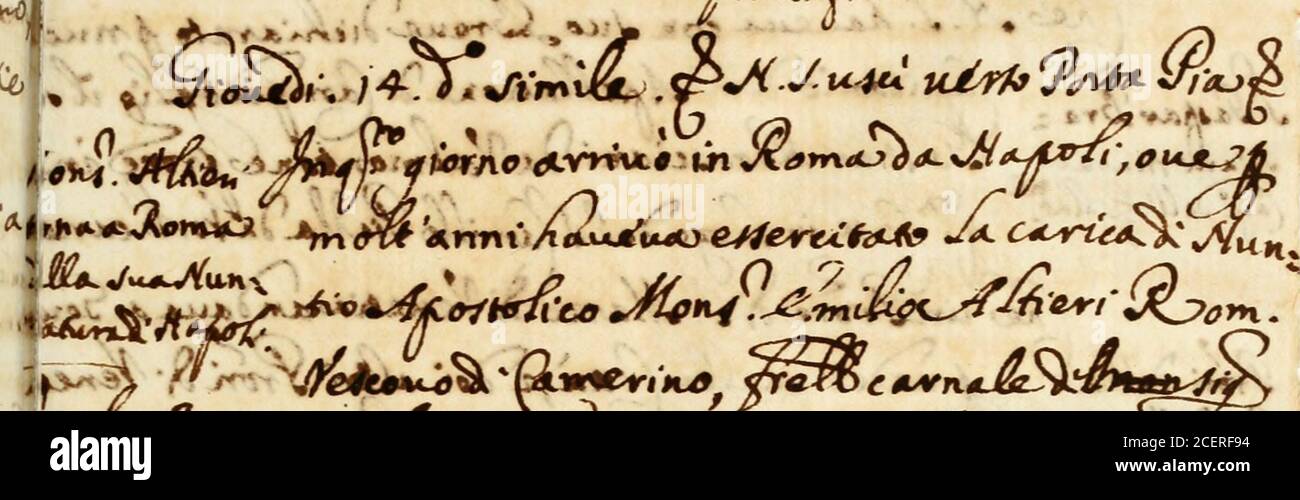 Giouedi. 14. do simile. N. S. uscì uerso Porta Pia
Altieri
a Roma
lla sua Nun=
tiatura di Napoli.
In qsto giorno arriuò in Roma da Napoli, oue p
molt' anni haueua essercitato la carica di Nun=
tio Apostolico Mons.r Emilio Altieri Rom.
Vescouo di Camerino, frello carnale di
alamy
Image ID: 2CERF94
www.alamy.com